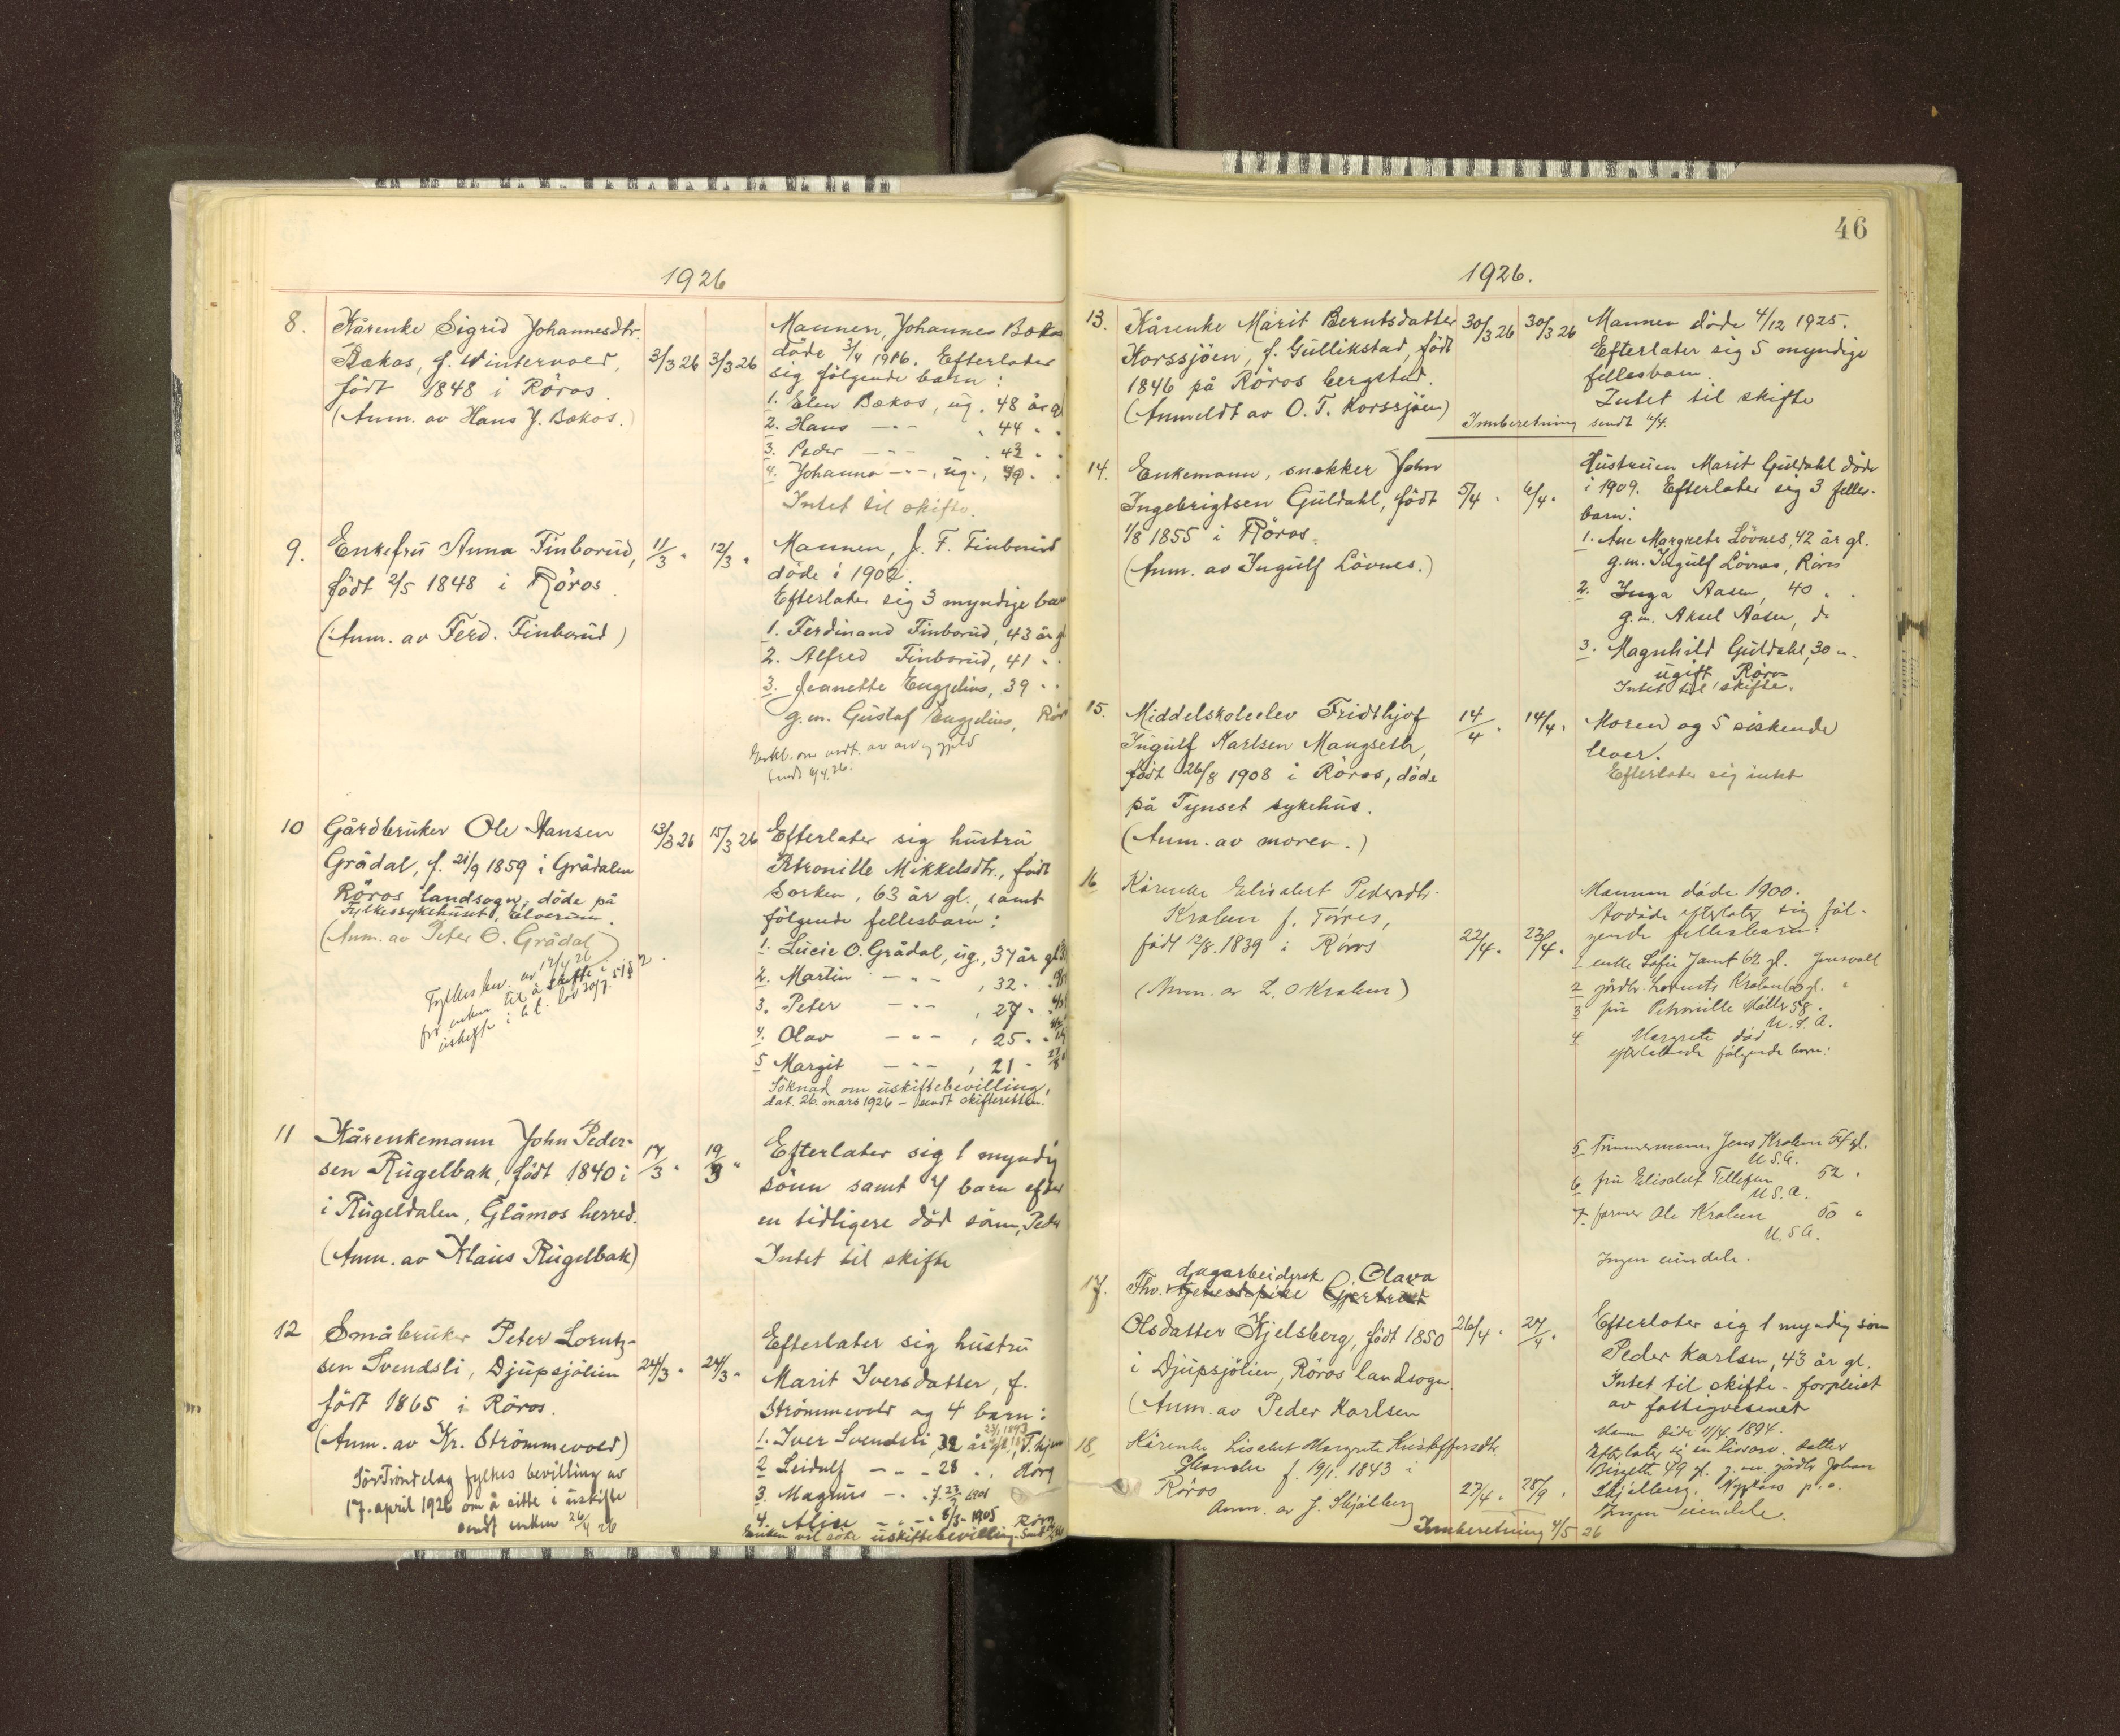 1926
8. Kårenke Sigrid Johannesdtr.
Bækos, f. Wintervold,
født 1848 i Röros.
(Anm. av Hans J. Bækos.)
3/3 26 3/3 26
Mannen, Johannes Bækos
døde 3/4 1916. Efterlater
sig følgende barn:
1. Elen Bækos, ug. 48 år g
2. Hans — " — " 44 " "
3. Peder — " — " 42 " "
4. Johanna — " —, ug., "
Intet til skifte.
9. Enkefru Anna Finborud,
født 2/5 1848 i Röros.
(Anm. av Ferd. Finborud)
11/3 " 12/3 "
Mannen, J. F. Finborud
døde i 1902.
Efterlater sig 3 myndige
1. Ferdinand Finborud, 43 år
2. Alfred Finborud, 41 " "
3. Jeanette Engzelius, 39 " "
g.m. Gustaf Engzelius,
Erkl. om vedt. av arv og gjeld
sendt 6/4 26.
10 Gårdbruker Ole Hansen
Grådal, f. 21/9 1859 i Grådalen
Röros landsogn, døde på
Fylkessykehuset, Elverum.
(Anm. av Peter O. Grådal)
Fylkesbev. av 17/4 26
for enken til å skifte i
uskifte i h.t. lov 30/7. 51 § 2.
13/3 26 15/3 26
Efterlater sig hustru
Petronille Mikkelsdtr., født
Sorken, 63 år gl., samt
følgende fellesbarn:
1. Lucie O. Grådal, ug., 37 år gl
2. Martin — " — , 32 "
3. Peter — " — , 27 "
4. Olav — " — , 25 "
5 Margit — " — , 21 "
Söknad om uskiftebevilling,
dat. 26. mars 1926 – sendt skifteretten.
11 Kårenkemann John Peder-
sen Rugelbak, født 1840 i
i Rugeldalen, Glåmos herred.
(Anm. av Klaus Rugelbak)
17/3 " 19/3 "
Efterlater sig 1 myndig
sönn samt 4 barn efter
en tidligere död sönn, Peder
Intet til skifte
12 Småbruker Peter Lorntz-
sen Svendsli, Djupsjölien
født 1865 i Röros.
(Anm. av Kr. Strömmevold)
Sör-Tröndelag fylkes bevilling av
17. april 1926 om å sitte i uskifte
sendt enken 26/4 26
24/3 " 24/3 "
Efterlater sig hustru
Marit Iversdatter, f.
Strömmevold og 4 barn:
1. Iver Svendsli, 32 år gl., T.hjem
2 Leidulf — " — 28 " ,
3. Magnus — " f. 23/2 1901
4. Aline — " — 8/3 - 1905 Röros
Enken vil söke uskiftebevilling.
46
1926.
13. Kårenke Marit Berntsdatter
Korssjöen, f. Gullikstad, født
1846 på Röros bergstad.
(Anmeldt av O. T. Korssjöen)
30/3 26 30/3 26
Mannen døde 4/12 1925.
Efterlater sig 5 myndige
fellesbarn.
Intet til skifte
Innberetning sendt 6/4.
14. Enkemann, snekker John
Ingebrigtsen Guldahl, født
1/8 1855 i Röros.
(Anm. av Ingulf Lövnes.)
5/4 " 6/4 "
Hustruen Marit Guldahl døde
i 1909. Efterlater sig 3 felles-
barn:
1. Ane Margrete Lövnes, 42 år gl.
g.m. Ingulf Lövnes, Röros
2. Inga Aasen, 40 " "
g.m. Aksel Aasen, do
3. Magnhild Guldahl, 30 " "
ugift Röros
Intet til skifte.
15. Middelskoleelev Fridthjof
Ingulf Karlsen Mangseth,
født 26/8 1908 i Röros, døde
på Tynset sykehus.
(Anm. av moren.)
14/4 " 14/4 "
Moren og 5 söskende
lever.
Efterlater sig intet
16 Kårenke Elisabet Pedersdtr.
Kroken f. Törres,
født 12/8. 1839 i Røros
(Anm. av L. O Kroken)
22/4 " 23/4 "
Mannen døde 1900.
Avdøde efterlater sig føl-
gende fellesbarn:
1 enke Sofie Jamt 62 gl.
2 gårdbr. Lornts Kroken 60 gl. "
3 fru Petronille Møller 58 "
U.S.A.
4 Margrete død
efterlatende følgende barn:
5 Tømmermann Jens Kroken 54 gl.
U.S.A.
6 fru Elisabet Tellefsen 52 "
U.S.A.
7 farmer Ole Kroken 50 "
U.S.A.
Ingen eiendele.
17. Fhv. tjenestepike Gjertrud
dagarbeiderske Olava
Olsdatter Kjelsberg, født 1850
i Djupsjölien, Röros landsogn.
(Anm. av Peder Karlsen
26/4 " 27/4 "
Efterlater sig 1 myndig sönn
Peder Karlsen, 43 år gl.
Intet til skifte – forpleiet
av fattigvesenet
18. Kårenke Lisabet Margrete Kristoffersdtr
f. 19/1. 1843 i
Røros
Anm. av J. Skjølberg
27/4 "
Mann døde 11/4 1894.
Efterlater sig en livsarv. datter
Birgitte 49 gl. g.m. gårdbr. Johan
Skjølberg,
Ingen eiendele.
Innberetning 4/5 26